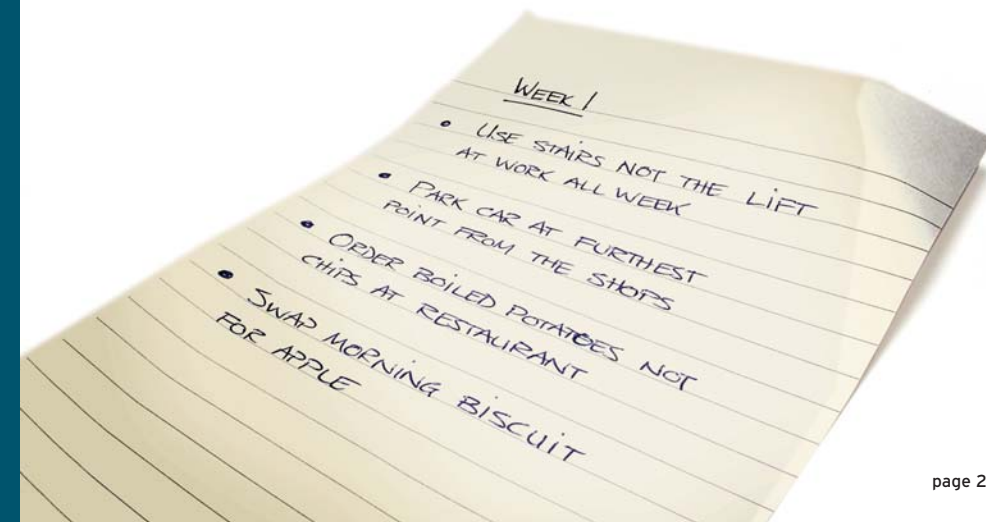 WEEK 1
• USE STAIRS NOT THE LIFT
AT WORK ALL WEEK
• PARK CAR AT FURTHEST
POINT FROM THE SHOPS
• ORDER BOILED POTATOES NOT
CHIPS AT RESTAURANT
• SWAP MORNING BISCUIT
FOR APPLE
page 2